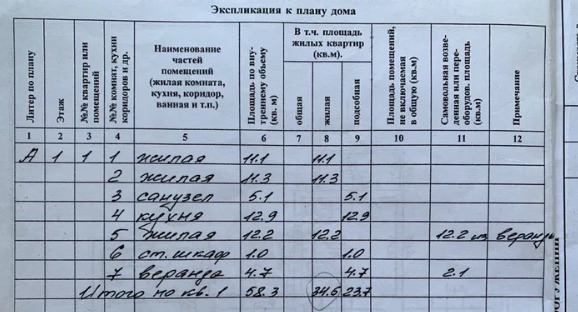 Экспликация к плану дома
Литер по плану | Этаж | №№ квартир или помещений | №№ комнат, кухни коридоров и др. | Наименование частей помещений (жилая комната, кухня, коридор, ванная и т.п.) | Площадь по внутреннему обмеру (кв. м) | В т.ч. площадь жилых квартир (кв.м). | общая | жилая | подсобная | Площадь помещений, не включаемая в общую (кв. м) | Самовольная возведенная или переоборудов. площадь (кв.м) | Примечание
1 2 3 4 5 6 7 8 9 10 11 12
А 1 1 1 жилая 11.1 11.1
2 жилая 11.3 11.3
3 санузел 5.1 5.1
4 кухня 12.9 12.9
5 жилая 12.2 12.2 12.2 из веранды
6 ст. шкаф 1.0 1.0
7 веранда 4.7 4.7 2.1
Итого по кв. 1 58.3 34.6 23.7